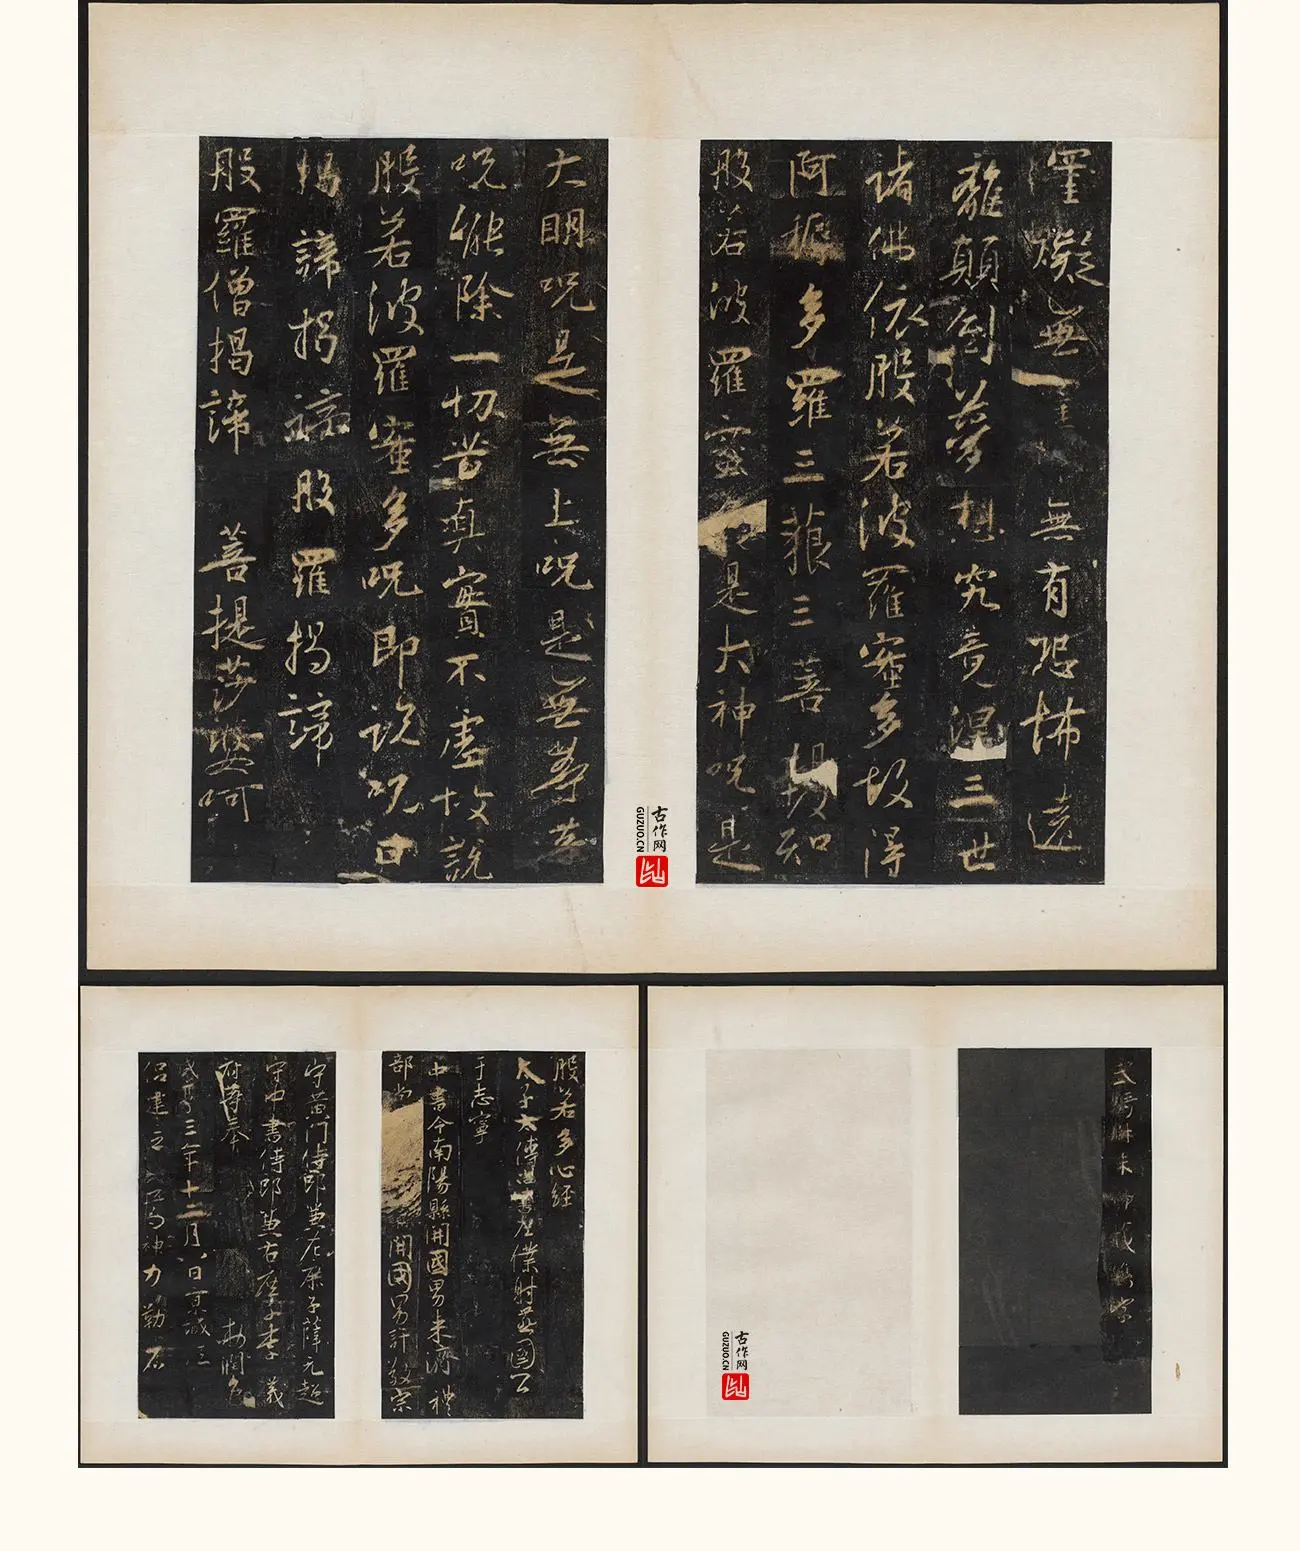 罣礙無 無有恐怖遠
離顛倒夢想究竟涅 三世
諸佛依般若波羅蜜多故得
阿 多羅三藐三菩 故知
般若波羅蜜 是大神咒是
大明咒是無上咒是無等等
咒能除一切苦真實不虛故說
般若波羅蜜多咒即說咒曰
揭諦揭諦般羅揭諦
般羅僧揭諦 菩提莎婆呵
古作网
GUZUO.CN
般若多心經
太子太傅尚書左僕射燕國公
于志寧
中書令南陽縣開國男来濟 禮
部尚 開國男許敬宗
守黃門侍郎兼左庶子薛元超
守中書侍郎兼右庶子李義
府等奉 勅潤色
咸亨三年十二月八日京城
侶建立 神力勒石
武騎尉朱 藏鐫字
古作网
GUZUO.CN